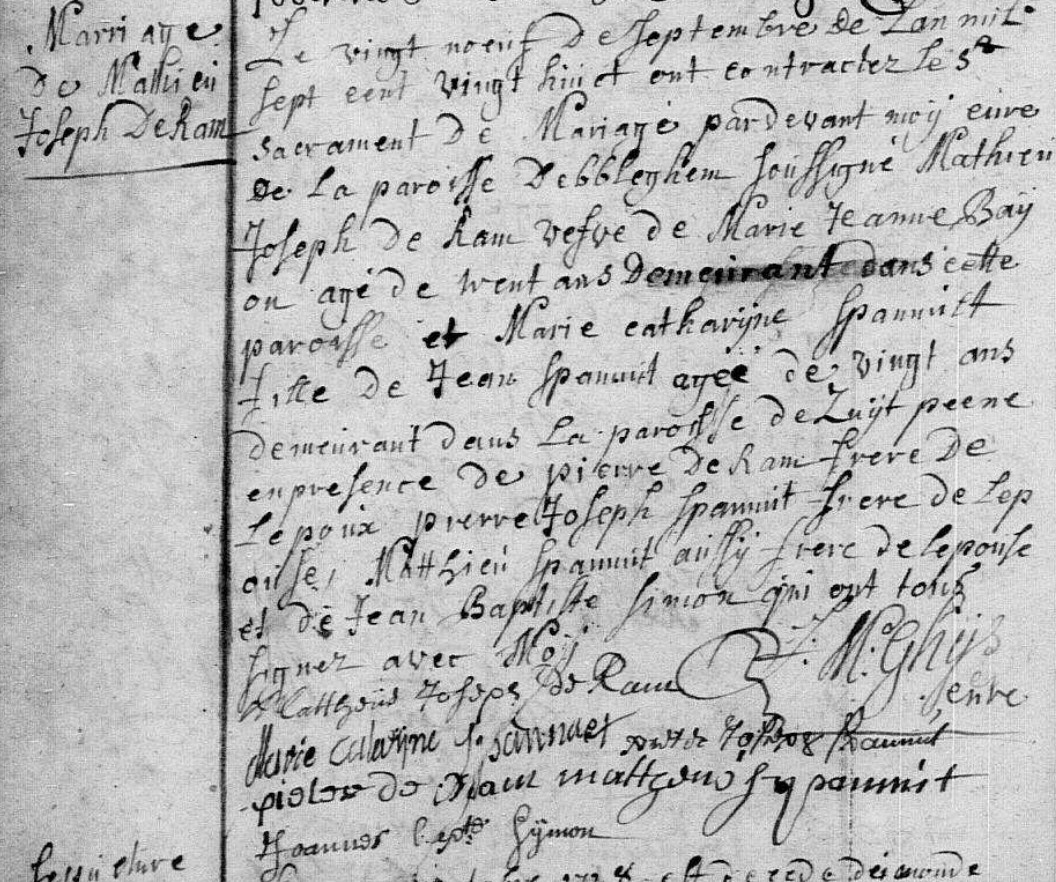 Marriage
de Mathieu
Joseph DeRam
Le vingt noeuf De septembre de Lan mil
sept cent vingt huict ont contractez le St
sacrement De Mariage pardevant moÿ cure
De La paroisse Debbleghem soussigné Mathieu
Joseph de Ram vefve de Marie Jeanne Baÿ
on agé de trent ans Demeurant dans cette
paroisse et Marie catharÿne spannút
fille De Jean spannút ageé de vingt ans
demeurant dans La paroisse de Zuÿt peene
enpresence de pierre DeRam frere De
Lepoux pierre Joseph spannút frere de Lep
ouse, Matthieu spannút aussÿ frere de lepouse
et de Jean Baptiste simon qui ont tous
signez avec Moÿ
J. M. Ghÿs
cure
Mattheus Joseph De Ram
Marie Catarÿne spannuet pieter Joseph spannút
pieter de Ram mattheus spannút
Joannes bapte Sÿmon